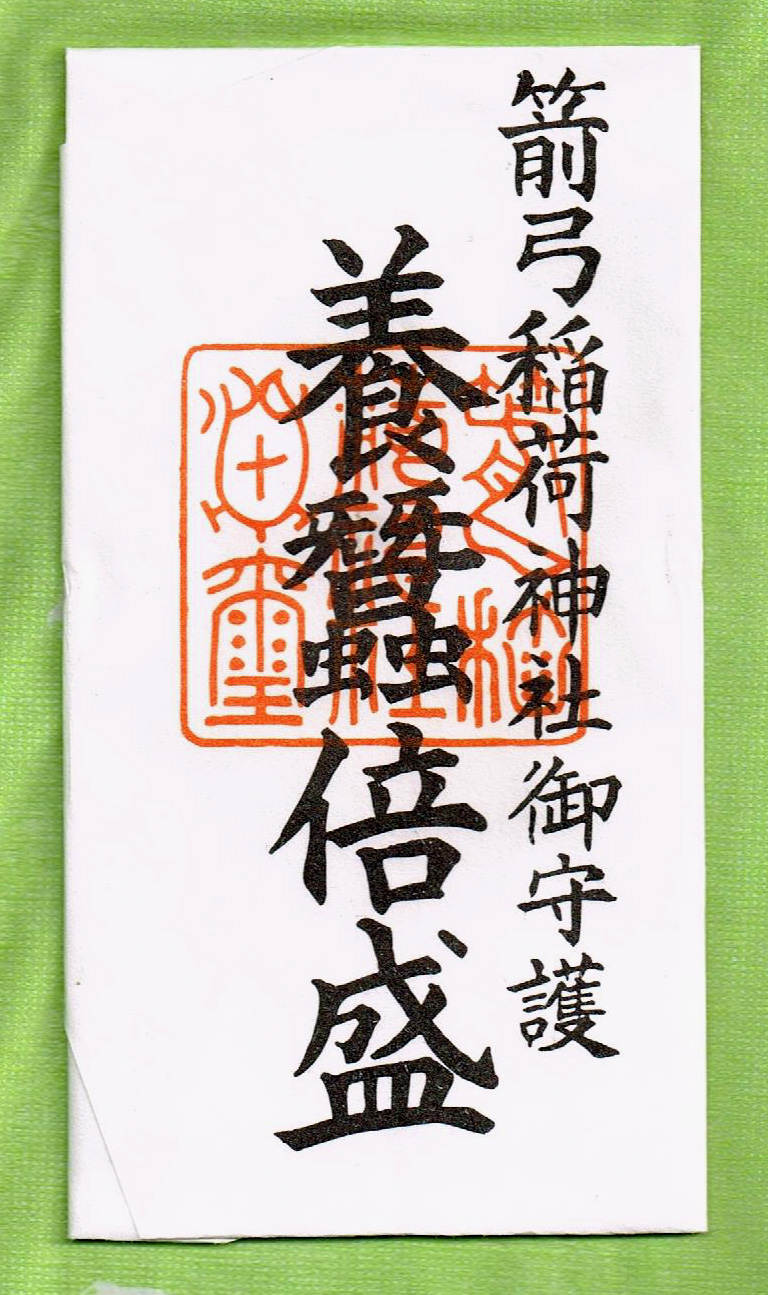 箭弓稲荷神社御守護
養蠶倍盛